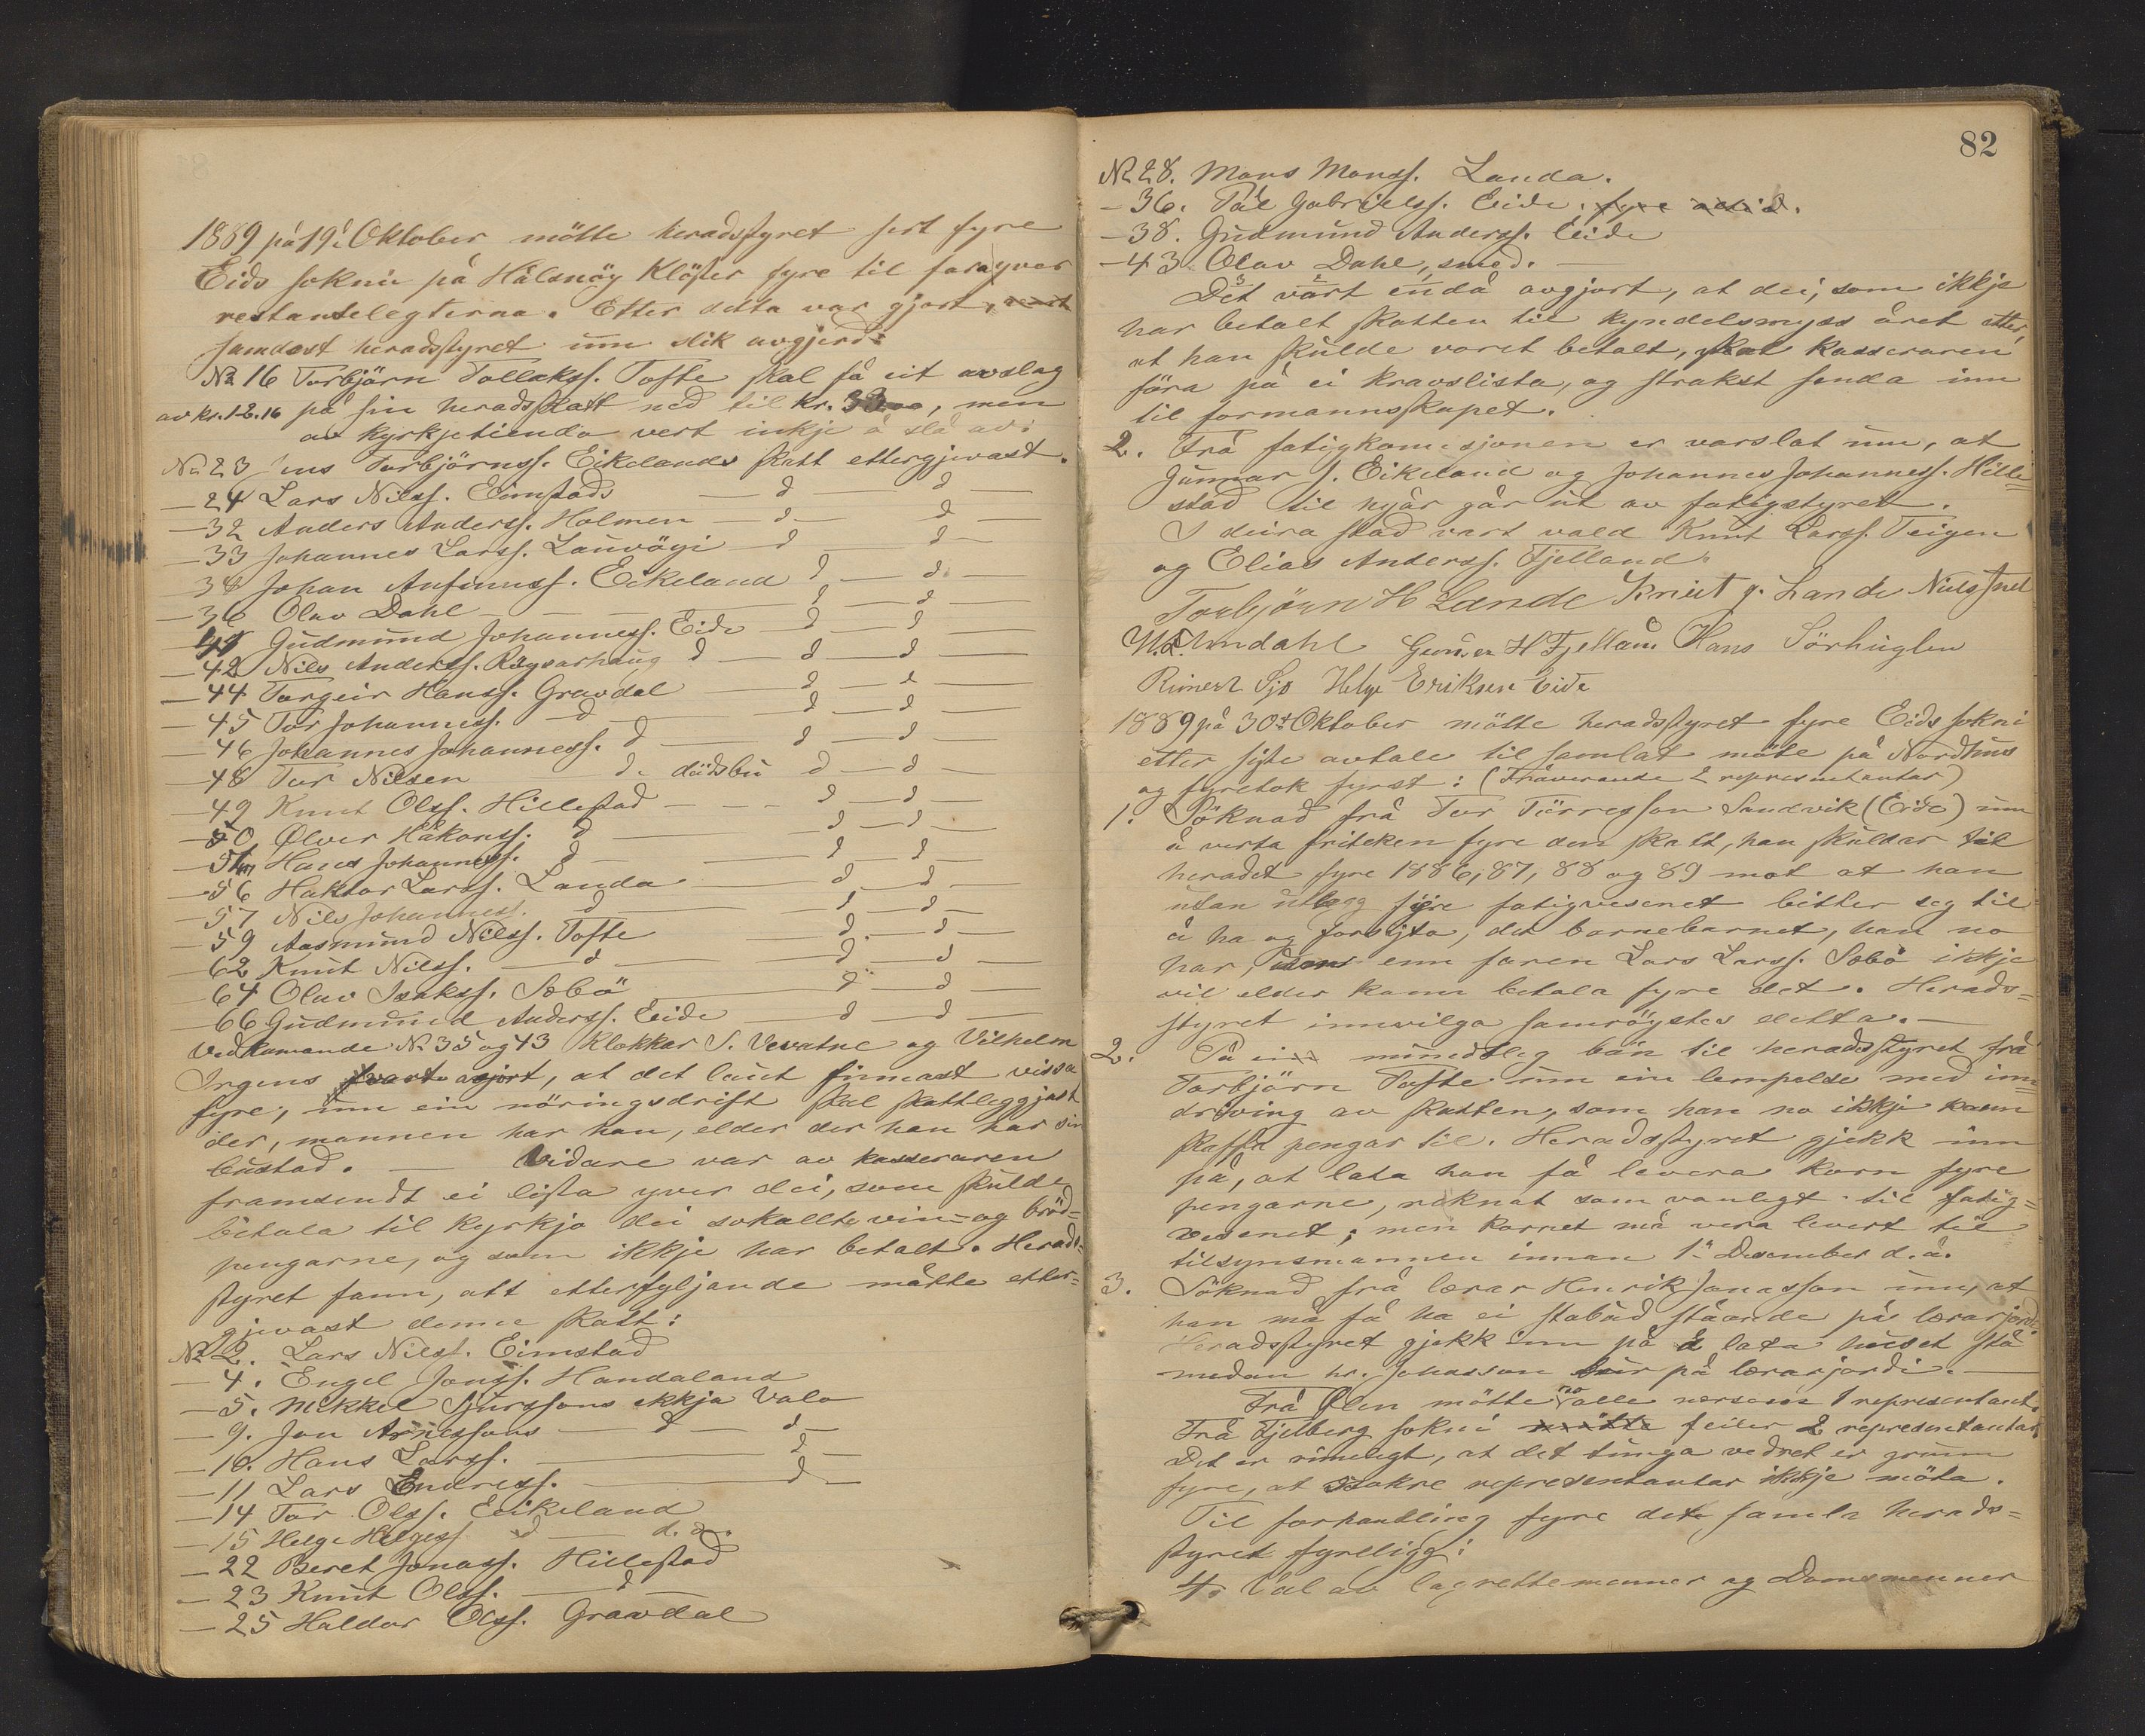 1889 på 19de Oktober mötte heradsstyret sert fyre
Eids sokni på Hålsnöy Klöster fyre til fara yver
restanselegterna. Etter detta var gjort,
samdest heradsstyret um slik avgjerd:
No 16 Torbjörn Tollakss. Tofte skal få eit avslag
av kr. 12.16 på sin heradsskatt ned til kr. , men
av kyrkjetienda vert inkje å slå av.
No 23 Jens Torbjörnss. Eikelands skatt ettergjevast.
— 24 Lars Nilss. Eimstads — d — d —
— 32 Anders Anderss. Holmen — d — d —
— 33 Johannes Larss. Lauvögi — d — d —
— 34 Johan Anfinnss. Eikeland d — d —
— 36 Olav Dahl — d — d —
— 41 Gudmund Johanness. Eide — d — d —
— 42 Nils Anderss. Røysarhaug d — d — d —
— 44 Torgeir Hanss. Gravdal — d — d —
— 45 Tor Johanness. — d — d — d —
— 46 Johannes Johanness. d — d — d —
— 48 Tor Nilsen — d. dödsbu d — d —
— 49 Knut Olss. Hillestad — d — d —
— 50 Ølver Håkonss. d — d — d —
— 54 Hans Johanness. d — d — d —
— 56 Haktor Larss. Landa — d — d —
— 57 Nils Johanness. d — d — d —
— 59 Aasmund Nilss. Tofte — d — d —
— 62 Knut Nilss. — d — d — d —
— 64 Olav Isakss. Sæbö — d — d —
— 66 Gudmund Anderss. Eide — d — d —
Vedkomande No 35 og 43 Klokkar S. Vevatne og Vilhelm
Irgens vart avgjort, at det laut finnast vissa
fyre, um ein näringsdrift skal skattleggjast
der, mannen har han, elder der han har sin
bustad. — Vidare var av kasseraren
framsendt ei lista yver dei, som skulde
betala til kyrkja dei sokallte vin- og bröd=
pengarne, og som ikkje har betalt. Herads=
styret fann, att etterfyljande måtte etter=
gjevast denne skatt:
No 2. Lars Nilss. Eimstad
— 4. Engel Jonss. Handaland
— 5. Mikkel Sjurssons ekkja Valo
— 9. Jon Arnessons — d — d —
— 10. Hans Larss. — d —
— 11 Lars Endress. — d —
— 14 Tor Olss. Eeikeland
— 15 Helge Helgess d — d. d.
— 22 Beret Jonass. Hillestad
— 23 Knut Olss. — d
— 25 Haldor Olss. Gravdal
82
No 28. Mons Monss. Landa.
— 36. Pål Gabrielss. Eide.
— 38. Gudmund Anderss. Eide
— 43 Olav Dahl, smed. —
Det vart endå avgjort, at dei, som ikkje
har betalt skatten til kyndelsmyss året etter,
at han skulde voret betalt, skal kasseraren
föra på ei kravslista, og strakst senda inn
til formannsskapet.
2. Frå fatigkomisjonen er varslat um, at
Gunnar J. Eikeland og Johannes Johanness. Hille=
stad til nyår går ut av fatigstyret.
I deira stad vart vald Knut Larss. Teigen
og Elias Anderss. Fjelland.
Torbjörn H Lande Knut J. Lande Nils
Undahl Gunnar H Fjelland Hans Sörhuglen
Rimest Sjo Helge Eriksen Eide
1889 på 30te Oktober mötte heradsstyret fyre Eids sokni
etter siste avtale til samlat möte på Nordhus
og fyretok fyrst: (Fråverande 2 representantar)
1. Söknad frå Tor Törresson Sandvik (Eide) um
å verta friteken fyre den skatt, han skuldar til
heradet fyre 1886, 87, 88 og 89 mot at han
utan utlegg fyre fatigvesenet bitter seg til
å ha og forsyta, det barnebarnet, han no
har, enn faren Lars Larss. Sæbö ikkje
vil elder kann betala fyre det. Herads=
styret innvilga samröystes detta. —
2. På munnleg bön til heradsstyret frå
Torbjörn Tofte um ein lempelse med inn=
driving av skatten, som han no ikkje kann
skaffa pengar til. Heradsstyret gjekk inn
på, at lata han få levera korn fyre
pengarne, reknat som vanlegt til fatig=
vesenet; men kornet må vera levert til
tilsynsmannen innan 1ste Desember d. å.
3. Söknad frå lærar Henrik Jonasson um, at
han må få ha ei stabud ståande på lærarjordi
Heradsstyret gjekk inn på å lata huset stå
medan hr. Jonasson bur på lærarjordi. —
Frå Ølen mötte no alle nersom 1 representant.
Frå Fjelberg sokni feiler 2 representantar.
Det er rimelegt, at det tunga vedret er grunn
fyre, at sokre representantar ikkje möta.
Til forhandling fyre det samla herads=
styret fyreligg:
4. Val av lagrettemenner og Domsmenner